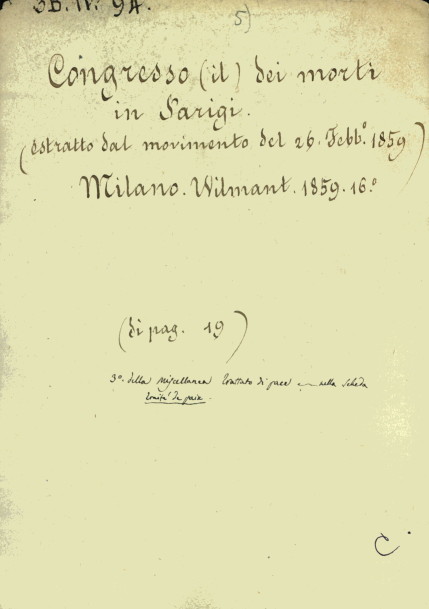 3B. IV. 94.
5)
Congresso (il) dei morti
in Parigi.
(estratto dal movimento del 26. Febb.º 1859)
Milano. Wilmant. 1859. 16.º
(di pag. 19)
3º. della Miscellanea Trattato di pace nella scheda
Traité de paix.
C.